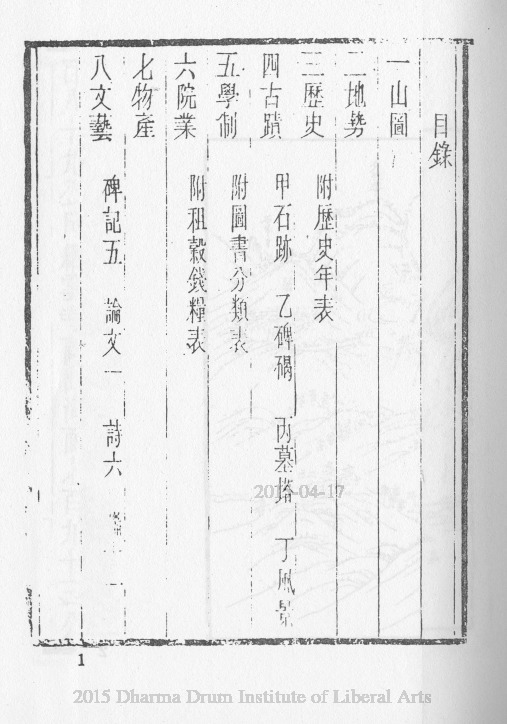 目錄
一山圖
二地勢
三歷史 附歷史年表
四古蹟 甲石跡 乙碑碣 丙墓塔 丁風景
五學制 附圖書分類表
六院業 附租穀錢糧表
七物產
八文藝 碑記五 論文一 詩六
1
2015-04-17
2015 Dharma Drum Institute of Liberal Arts